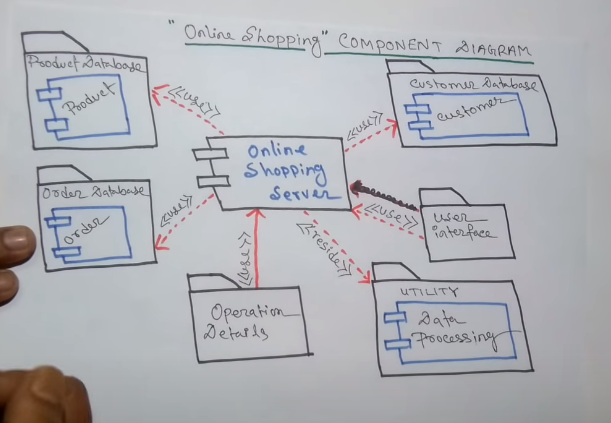 "Online Shopping" COMPONENT DIAGRAM
Product Database
Product
<<use>>
Customer Database
customer
<<use>>
Online
Shopping
Server
Order Database
Order
<<use>>
<<use>>
user
interface
<<reside>>
<<use>>
Operation
Details
UTILITY
Data
Processing